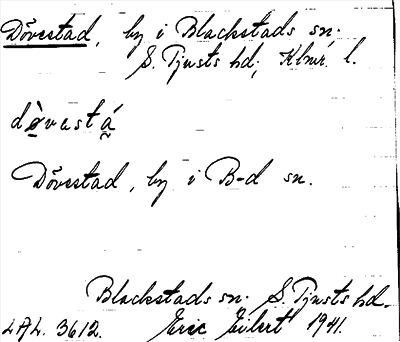 Dövestad, by i Blackstads sn.
S. Tjusts hd, Klmr. l.
dø̀vastá
Dövestad, by i B-d sn.
Blackstads sn. S. Tjusts hd.
LAL. 3612. Eric Eilert 1941.